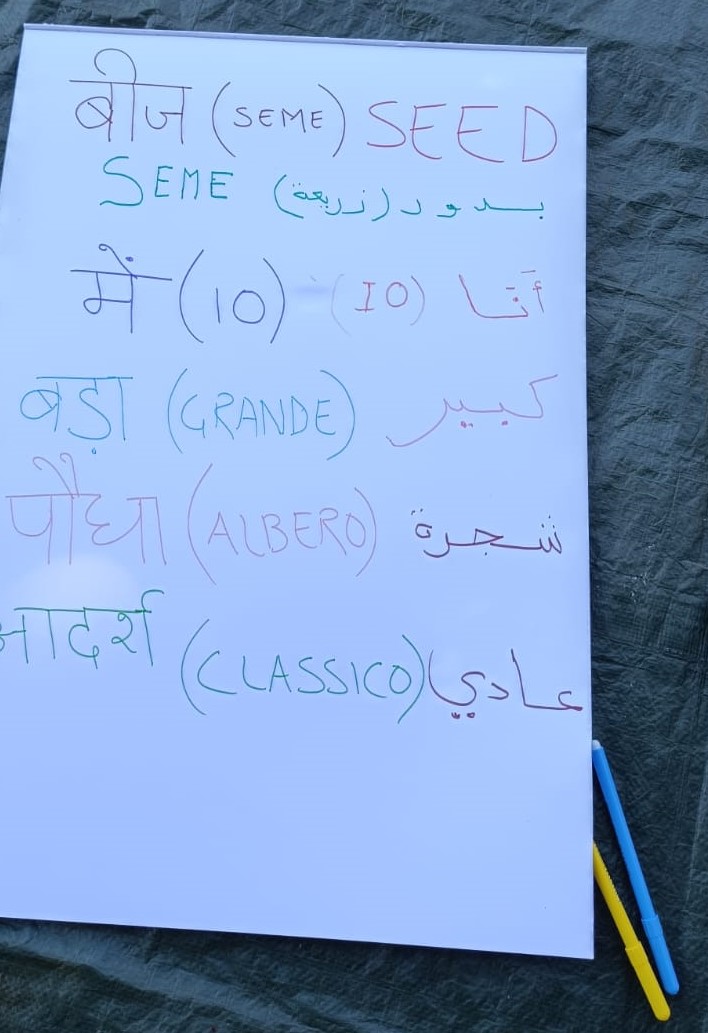 बीज (SEME) SEED
SEME بدور (زريعة)
में (IO) (IO) أنا
बड़ा (GRANDE) كبير
पौधा (ALBERO) شجرة
आदर्श (CLASSICO) عادي